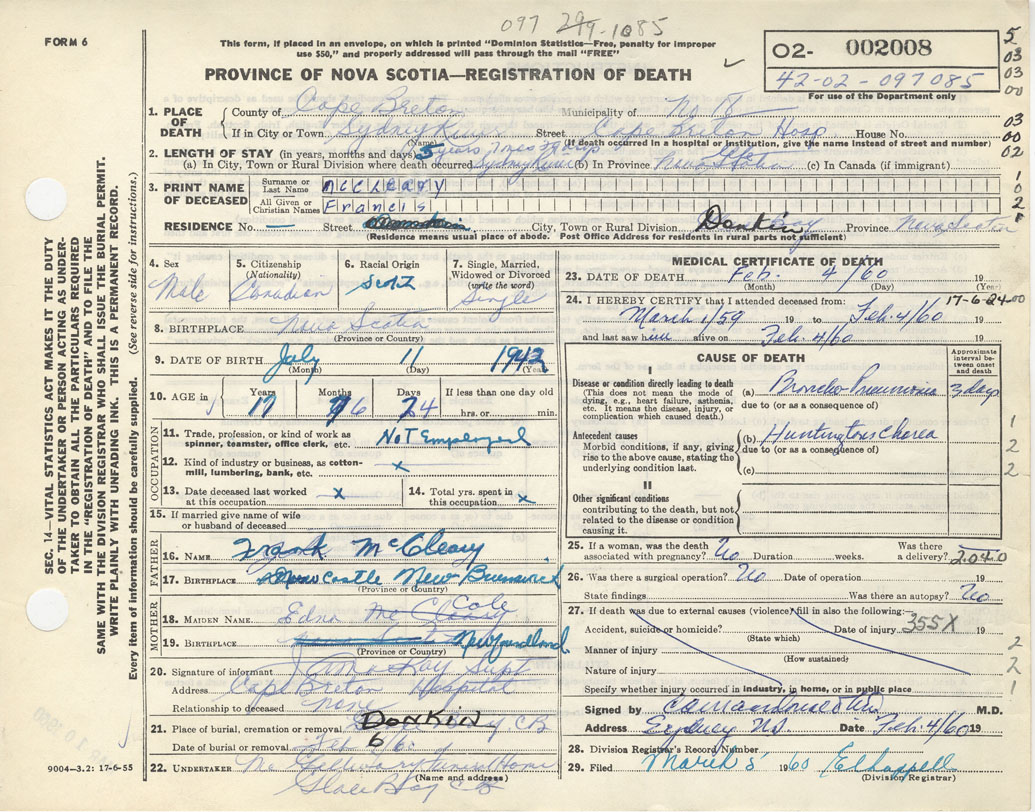 097 299-1085
FORM 6
This form, if placed in an envelope, on which is printed "Dominion Statistics—Free, penalty for improper
use $50," and properly addressed will pass through the mail "FREE"
PROVINCE OF NOVA SCOTIA—REGISTRATION OF DEATH
O2- 002008
42-02-097085
For use of the Department only
5
03
03
00
03
00
02
1
0
2
1
1. PLACE OF DEATH County of Cape Breton Municipality of
If in City or Town Sydney River Street Cape Breton Hosp House No.
(Name) (If death occurred in a hospital or institution, give the name instead of street and number)
2. LENGTH OF STAY (in years, months and days)
(a) In City, Town or Rural Division where death occurred Sydney River (b) In Province Nova Scotia (c) In Canada (if immigrant)
3. PRINT NAME OF DECEASED
Surname or Last Name McCleary
All Given or Christian Names Francis
RESIDENCE No. — Street City, Town or Rural Division Donkin Province Nova Scotia
(Residence means usual place of abode. Post Office Address for residents in rural parts not sufficient)
4. Sex Male
5. Citizenship (Nationality) Canadian
6. Racial Origin Scotz
7. Single, Married, Widowed or Divorced (write the word) Single
8. BIRTHPLACE Nova Scotia
(Province or Country)
9. DATE OF BIRTH July 11 1942
(Month) (Date) (Year)
10. AGE in Years 17 Months 6 Days 24 If less than one day old hrs. or min.
OCCUPATION
11. Trade, profession, or kind of work as spinner, teamster, office clerk, etc. Not Employed
12. Kind of industry or business, as cotton-mill, lumbering, bank, etc. x
13. Date deceased last worked at this occupation x
14. Total yrs. spent in this occupation x
15. If married give name of wife or husband of deceased
FATHER
16. NAME Frank McCleary
17. BIRTHPLACE Newcastle New Brunswick
(Province or Country)
MOTHER
18. MAIDEN NAME Edna Cole
19. BIRTHPLACE Newfoundland
(Province or Country)
20. Signature of informant
Address Cape Breton Hospital
Relationship to deceased none
21. Place of burial, cremation or removal Donkin CB
Date of burial or removal Feb 6
22. UNDERTAKER Funeral Home
(Name and address)
Glace Bay CB
9004—3.2: 17-6-55
MEDICAL CERTIFICATE OF DEATH
23. DATE OF DEATH Feb. 4/60 19
(Month) (Day) (Year)
24. I HEREBY CERTIFY that I attended deceased from: 17-6-24-00
March 1/59 19 to Feb. 4/60 19
and last saw him alive on Feb. 4/60 19
CAUSE OF DEATH
Approximate interval between onset and death
I
Disease or condition directly leading to death
(This does not mean the mode of dying, e.g., heart failure, asthenia, etc. It means the disease, injury, or complication which caused death.)
(a) Broncho-Pneumonia 3 days
due to (or as a consequence of)
Antecedent causes
Morbid conditions, if any, giving rise to the above cause, stating the underlying condition last.
(b) Huntingtons Chorea
due to (or as a consequence of)
(c)
1
2
2
II
Other significant conditions
contributing to the death, but not related to the disease or condition causing it.
25. If a woman, was the death associated with pregnancy? No Duration weeks. Was there a delivery? 2040
26. Was there a surgical operation? No Date of operation
State findings Was there an autopsy? No
27. If death was due to external causes (violence) fill in also the following:—
Accident, suicide or homicide? Date of injury 355X 19
(State which)
Manner of injury
(How sustained)
Nature of injury
Specify whether injury occurred in industry, in home, or in public place
2
2
1
Signed by M.D.
Address Sydney N.S. Date Feb. 4/60 19
28. Division Registrar's Record Number
29. Filed March 5 1960
(Division Registrar)
SEC. 14—VITAL STATISTICS ACT MAKES IT THE DUTY
OF THE UNDERTAKER OR PERSON ACTING AS UNDER-
TAKER TO OBTAIN ALL THE PARTICULARS REQUIRED
IN THE "REGISTRATION OF DEATH" AND TO FILE THE
SAME WITH THE DIVISION REGISTRAR WHO SHALL ISSUE THE BURIAL PERMIT.
WRITE PLAINLY WITH UNFADING INK. THIS IS A PERMANENT RECORD.
Every item of information should be carefully supplied. (See reverse side for instructions.)